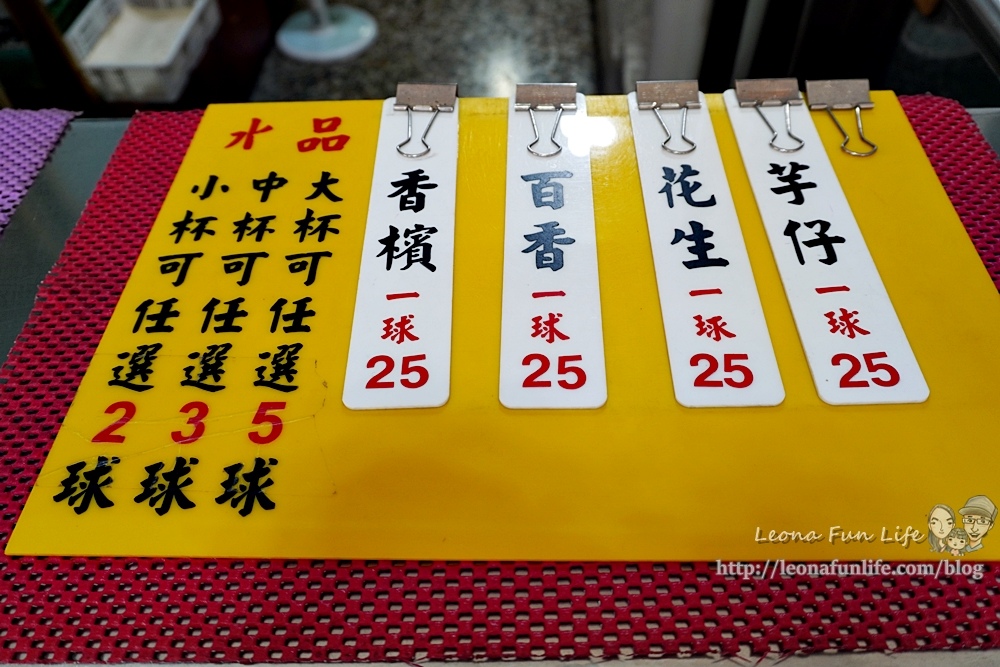 品水
大杯可任選5球
中杯可任選3球
小杯可任選2球
香檳一球25
百香一球25
花生一球25
芋仔一球25
Leona Fun Life
http://leonafunlife.com/blog